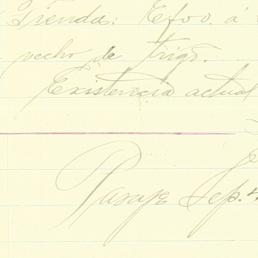 Tienda: Efvo. á
pecho de trigo.
Existencia actual
Pasaje Sep.